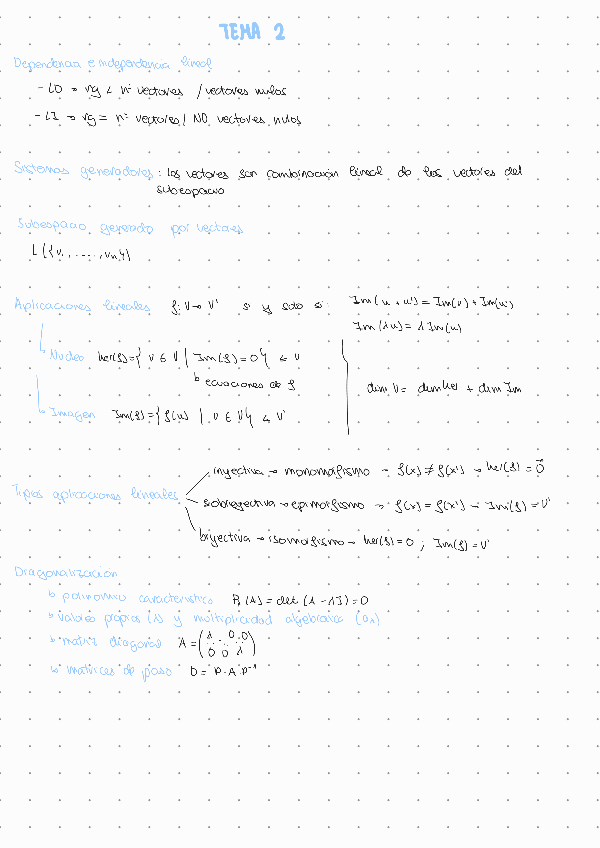 TEMA 2
Dependencia e independencia lineal
- LD → rg < nº vectores / vectores nulos
- LI → rg = nº vectores / NO vectores nulos
Sistemas generadores: los vectores son combinación lineal de los vectores del
subespacio
Subespacio generado por vectores
L({v, ....., vn})
Aplicaciones lineales f: V → V' si y solo si: Im(u + u') = Im(u) + Im(u')
Im(λu) = λ Im(u)
↳ Nucleo ker(f) = { v ∈ V | Im(f) = 0 } ≤ V
↳ ecuaciones de f
dim V = dim ker + dim Im
↳ Imagen Im(f) = { f(u) | v ∈ V } ≤ V'
Tipos aplicaciones lineales
inyectiva → monomorfismo → f(x) ≠ f(x') → ker(f) = 0⃗
sobreyectiva → epimorfismo → f(x) = f(x') → Im(f) = V'
biyectiva → isomorfismo → ker(f) = 0 ; Im(f) = V'
Diagonalización
↳ polinomio caracteristico P(λ) = det (A - λI) = 0
↳ valores propios (λ) y multiplicidad algebraica (aλ)
↳ matriz diagonal A = (λ . 0.0
0 0 λ)
↳ matrices de paso D = P · A · P⁻¹